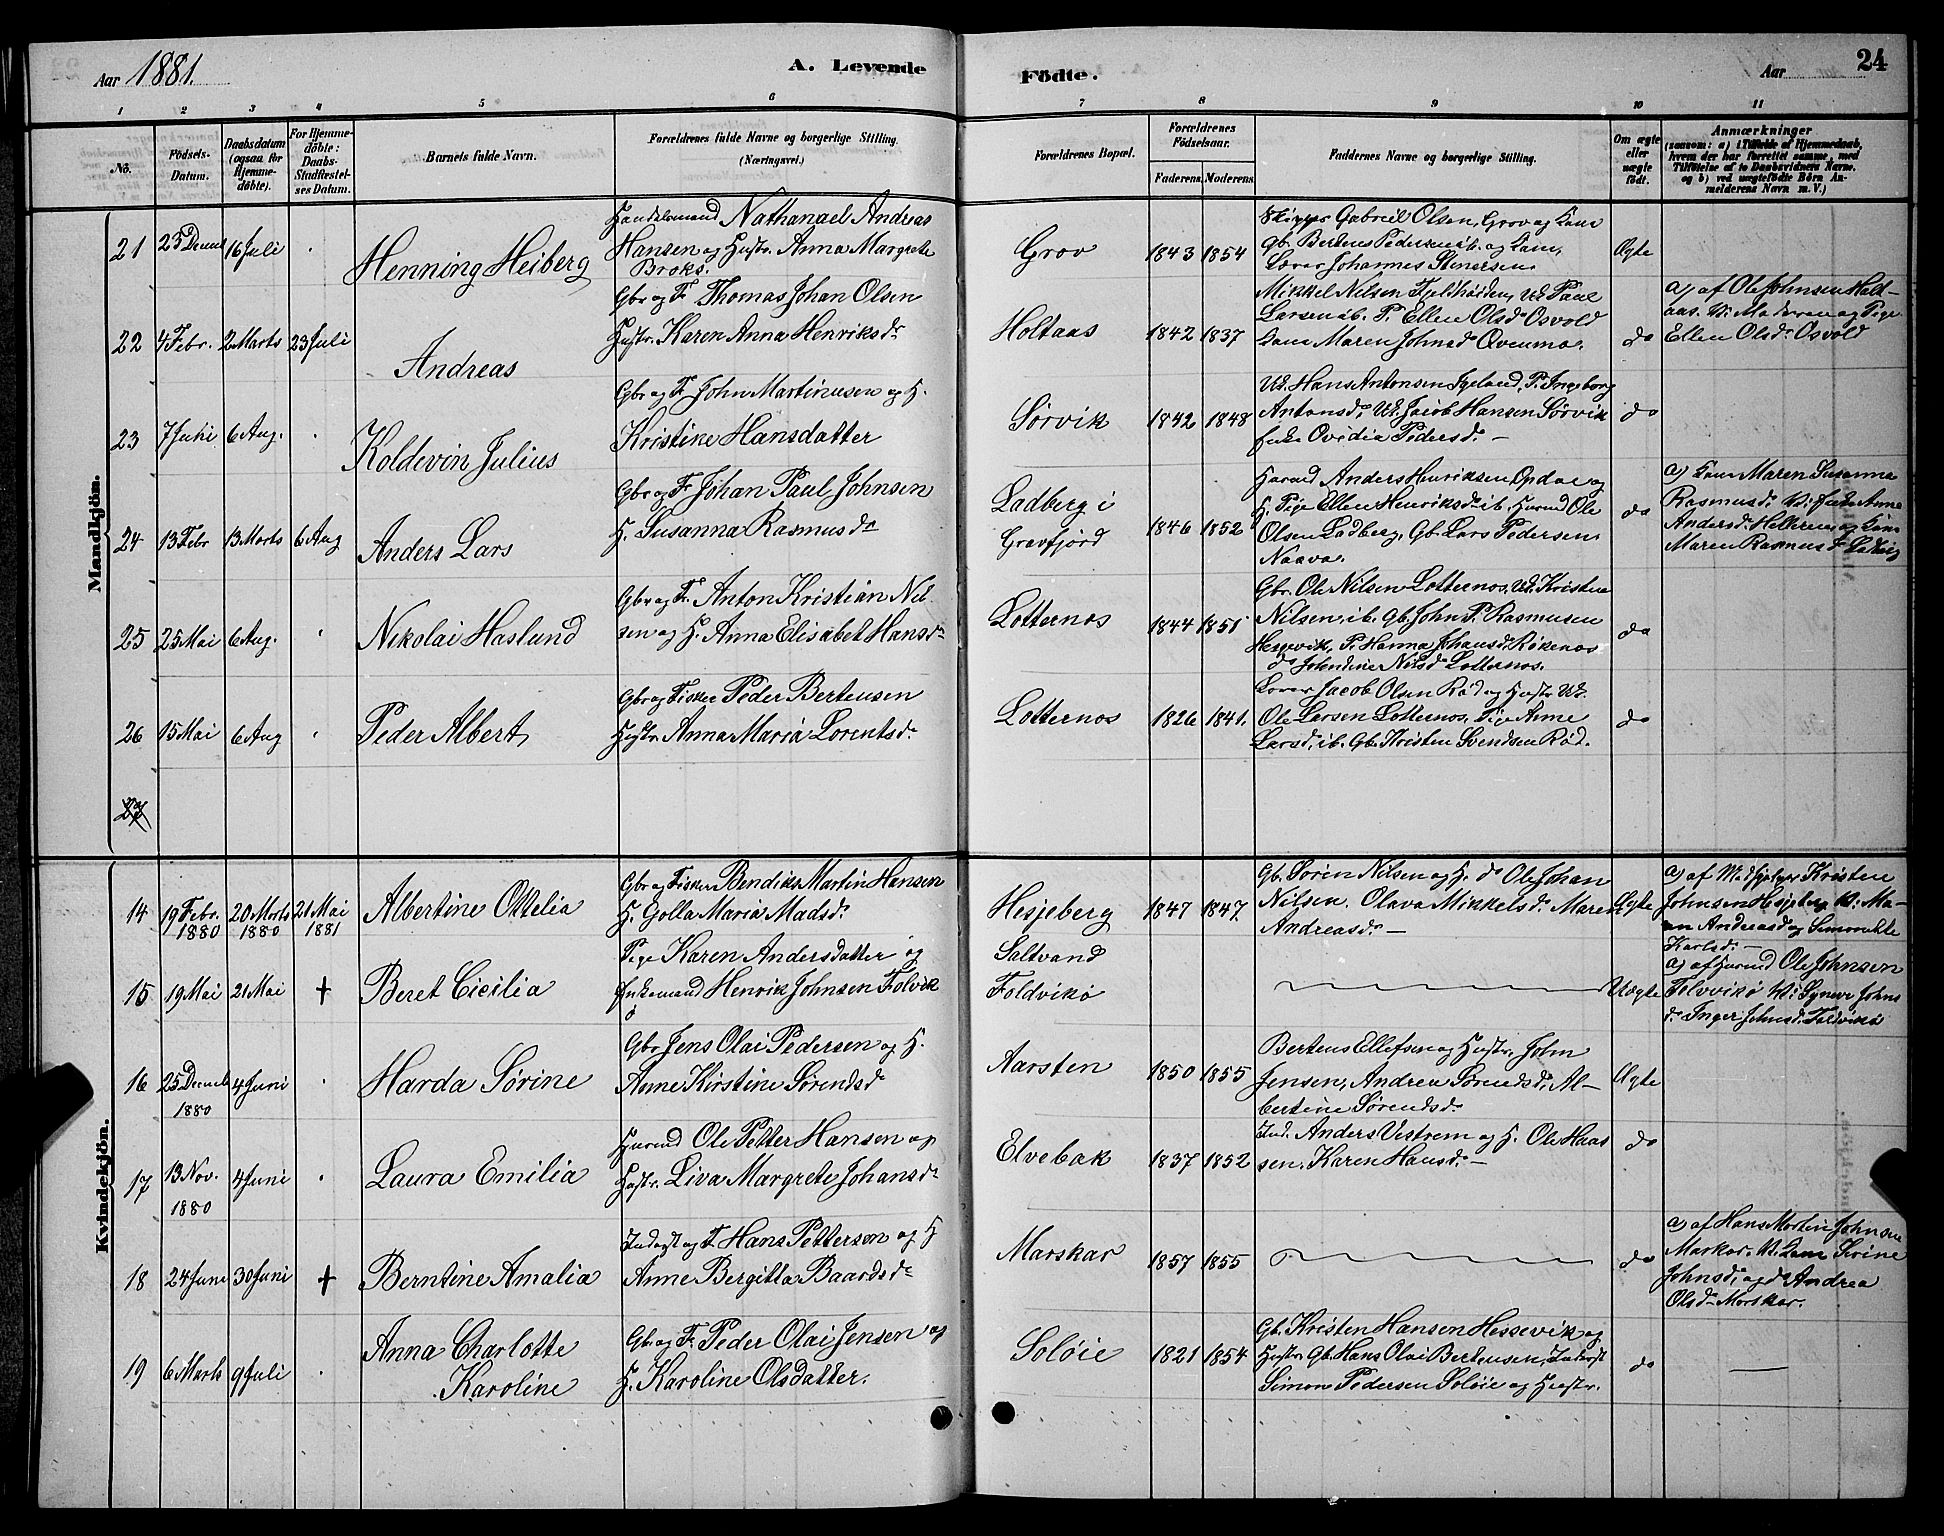 Aar 1881. A. Levende Födte. Aar 24
1 2 3 4 5 6 7 8 9 10 11
No.
Födsels-
Datum.
Daabsdatum
(ogsaa for
Hjemme-
döbte).
For Hjemme-
döbte:
Daabs-
Stadfæstel-
ses Datum.
Barnets fulde Navn.
Forældrenes fulde Navne og borgerlige Stilling.
(Næringsvei.)
Forældrenes Bopæl.
Forældrenes
Födselsaar.
Faderens. Moderens.
Faddernes Navne og borgerlige Stilling.
Om ægte
eller
uægte
födt.
Anmærkninger
(saasom: a) i Tilfælde af Hjemmedaab,
hvem der har forrettet samme, med
Tilföielse af to Daabsvidners Navne,
og b) ved uægtefödte Börn An-
melderens Navn m. V.)
Mandkjön.
21 23 Decem 16 Juli Henning Heiberg
Handelsmand Nathanael Andreas
Hansen og Hustr. Anna Margrete
Broks.
Grov 1843 1854
Skipper Gabriel Olsen, Grov og Kam
Gb. Berteus Pedersen ib. og Kam,
Lærer Johannes Stenersen
Ægte
22 4 Febr. 2 Marts 23 Juli Andreas
Gbr og Fr Thomas Johan Olsen
Hustr. Karen Anna Henriksdr
Holtaas 1842 1837
Mikkel Nilsen Fjeldhöiden, Uk Paul
Larsen ib. P. Ellen Olsdr Osvold
Kam Maren Johnsdr Qvenmo.
do
a) af Ole Johnsen Holt-
aas. V: Moderen og Pige
Ellen Olsdr Osvold
23 7 Juni 6 Aug. Koldevin Julius
Gbr og Fr John Martinusen og H.
Kristine Hansdatter
Sørvik 1842 1848
Uk. Hans Antonsen Igeland, P. Ingeborg
Antonsdr, Uk. Jacob Hansen Sørvik
Enke Ovidia Pedersdr. —
do
24 13 Febr 13 Marts 6 Aug Anders Lars
Gbr og Fr Johan Paul Johnsen
H. Susanna Rasmusdr
Ladberg i
Gravfjord
1846 1852
Husmd Anders Henriksen Opdal og
H. Pige Ellen Henriksdr ib. Husmd Ole
Olsen Ladberg, Gb. Lars Pedersen,
Naava.
do
a) Kam Maren Susanna
Rasmusdr. V: Enke Anne
Andersdr. Helleren og Kam
Maren Rasmusdr Ladberg
25 25 Mai 6 Aug. Nikolai Haslund
Gbr og Fr. Anton Kristian Nil-
sen og H. Anna Elisabet Hansdr
Lotternos 1844 1851
Gbr. Ole Nilsen Lotternos, Uk. Kristen
Nilsen, ib. Gb. John P. Rasmusen
Hessevik, P. Hanna Johansdr Røkenos
do Johndine Nilsdr Lotternos.
do
26 15 Mai 6 Aug Peder Albert
Gbr og Fisker Peder Berteusen
Hustr. Anna Maria Lorentsdr.
Lotternos 1826 1841.
Lærer Jacob Olsen Rød og Hustr Uk.
Ole Larsen Lotternos, Pige Anne
Larsdr, ib. Gb. Kristen Svendsen Rød.
do
27
Kvindekjön.
14 19 Febr. 1880 20 Marts 1880 21 Mai 1881 Albertine Ottelia
Gbr og Fisker Bendiks Martin Hansen
H. Golla Maria Madsdr.
Hesjeberg
Saltvand
1847 1847
Gb. Søren Nilsen og H. do Ole Johan
Nilsen. Olava Mikkelsdr. Maren
Andreasdr. —
Ægte
a) af Kristen
Johnsen Hesjeberg V: Ma-
ren Andreasdr og
Karlsdr. —
15 19 Mai 21 Mai † Beret Cicilia
Pige Karen Andersdatter og
Enkemand Henrik Johnsen Folvik
ø
Foldvikø
Uægte
a) af Husmd Ole Johnsen
Folvvikø V: Synevr Johns
dr. Inger Johnsdr. Foldvikø
16 25 Decemb 1880 4 Juni Harda Sørine
Gbr Jens Olai Pedersen og H.
Anne Kirstine Sørendsdr
Aarsten 1850 1855
Berteus Ellefsen og Hustr, John
Jensen, Andrea Sørendsdr, Al-
bertine Sørendsdr.
Ægte
17 13 Nov. 1880 4 Juni Laura Emilia
Husmd Ole Petter Hansen og
Hustr. Liva Margrete Johansdr
Elvebak 1837 1852
Ind. Anders Vestrem og H. Ole Haas
sen, Karen Hansdr. —
do
18 24 Juni 30 Juni † Berntine Amalia
Inderst og F. Hans Pettersen og H
Anne Bergitta Baardsdr
Marskar 1857 1855
do
a) af Hans Martin Johnsen
Markar. V: Kam Serine
Johnsdr, og do Andrea
Olsdr Morskar.
19 6 Marts 9 Juli Anna Charlotte
Karoline
Gbr og Fr Peder Olai Jensen og
H. Karoline Olsdatter.
Soløie 1821 1854
Gb. Kristen Hansen Hessevik og
Hustr. Gb. Hans Olai Berteusen, Inderst
Simon Pedersen Soløie og Hustr.
do —